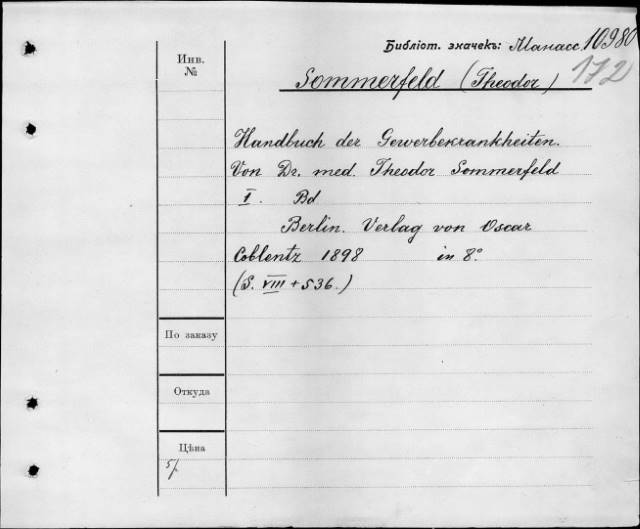 Библіот. значекъ: Манасс. 10980
172
Инв.
№
Sommerfeld (Theodor)
Handbuch der Gewerbekrankheiten.
Von Dr. med. Theodor Sommerfeld
I. Bd
Berlin. Verlag von Oscar
Coblentz 1898 in 8°
(S. VIII + 536.)
По заказу
Откуда
Цѣна
5/